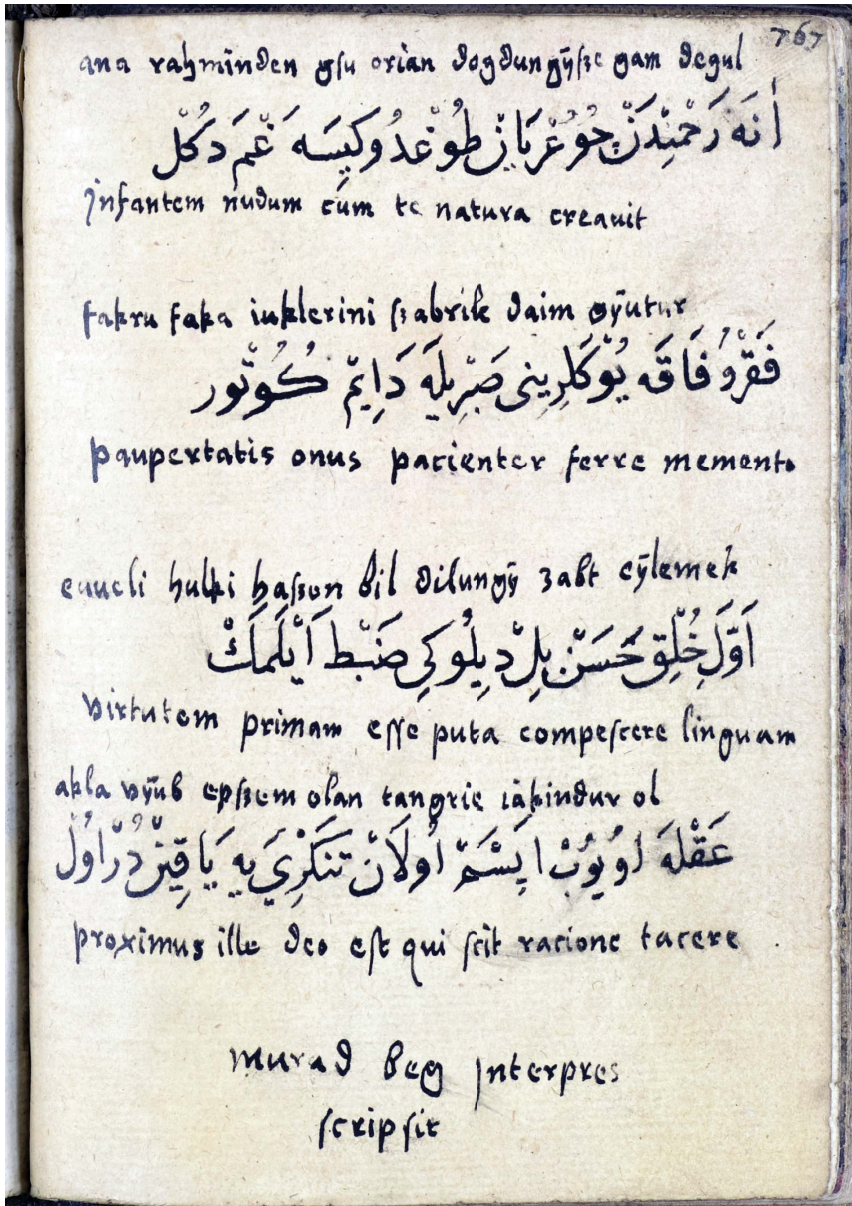 767
ana raḥmınden gsu orian dogdungÿsze gam degul
أَنَه رَحْمِنْدَنْ چُو عُرْيَانْ طُوغْدُوكِيسَه غَمْ دَكُل
jnfantem nudum cum te natura creauit
fakru faka iuklerini szabrile daim gÿutur
فَقْرُو فَاقَه يُوكَلرِينِى صَبْرِيلَه دَايِمْ كُوتُور
paupertatis onus pacienter ferre memento
euueli hulki hasson bil dilungÿ zabt eÿlemek
اَوَّلِ خُلْقِ حَسَنْ بِلْ دِيلُوكِى ضَبْط اَيْلَمَكْ
virtutem primam esse puta compescere linguam
akla vÿub epszem olan tangrie iakindur ol
عَقْلَه اُويُوبْ اِپَسْمْ اُولَانْ تَنكْرِيَ يه يَاقِينْ دُرْ اُولْ
proximus ille deo est qui scit racione tacere
murad beg jnterpres
scripsit